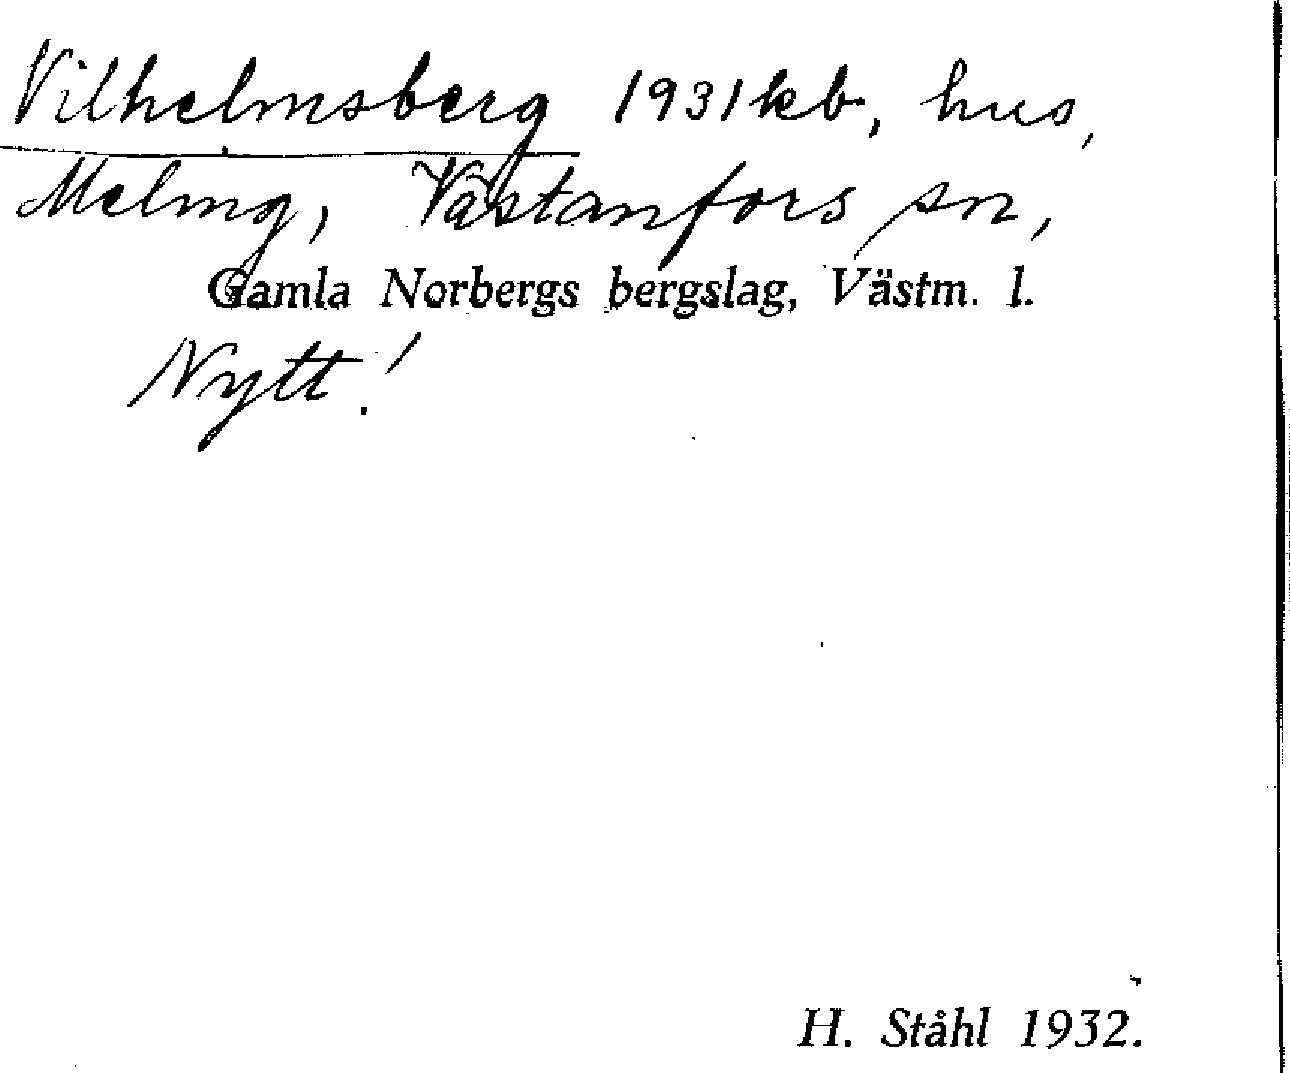 Vilhelmsberg 1931 kb., hus,
Meling, Västanfors sn,
Gamla Norbergs bergslag, Västm. l.
Nytt!
H. Ståhl 1932.